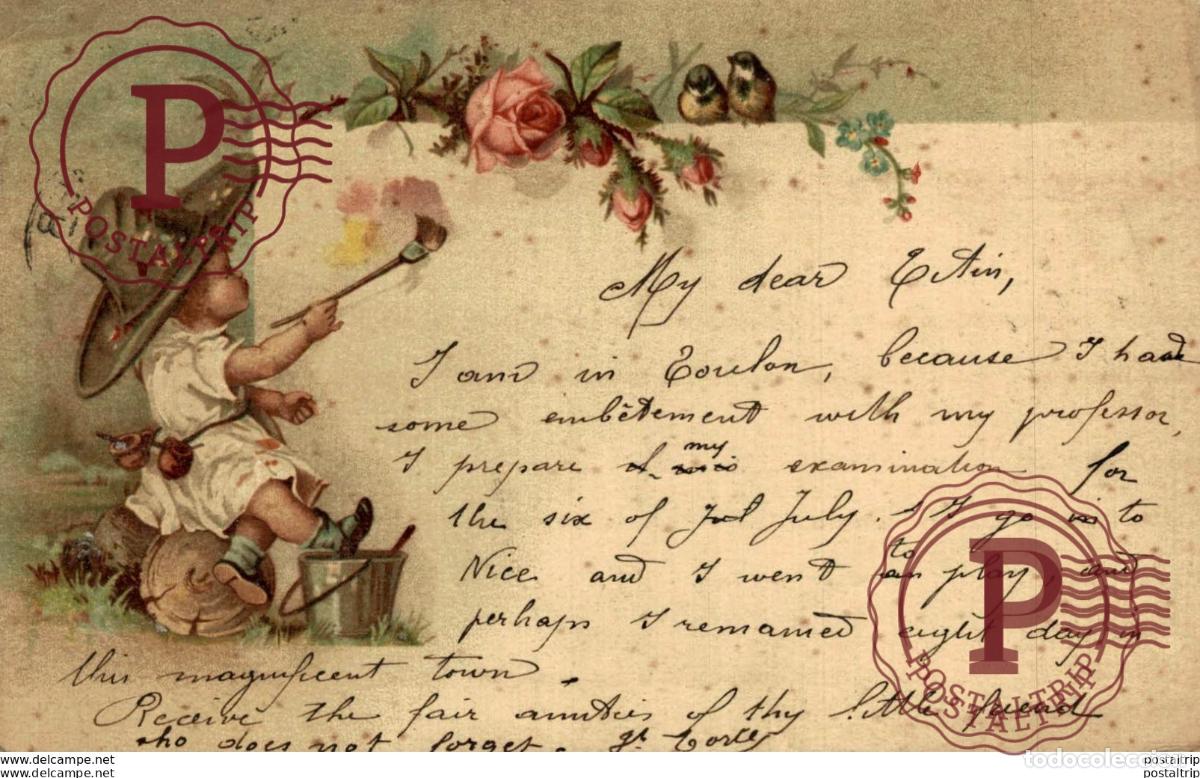 P
POSTALTRIP
My dear
I am in Toulon, because I have
some embêtement with my professor,
I prepare my examination for
the six of July. I go to
Nice and I went to play, and
perhaps I remained eight day in
this magnificent town.
Receive the fair amities of thy little friend
who does not forget.
P
POSTALTRIP
todocoleccion
www.delcampe.net
postaltrip
www.delcampe.net
postaltrip